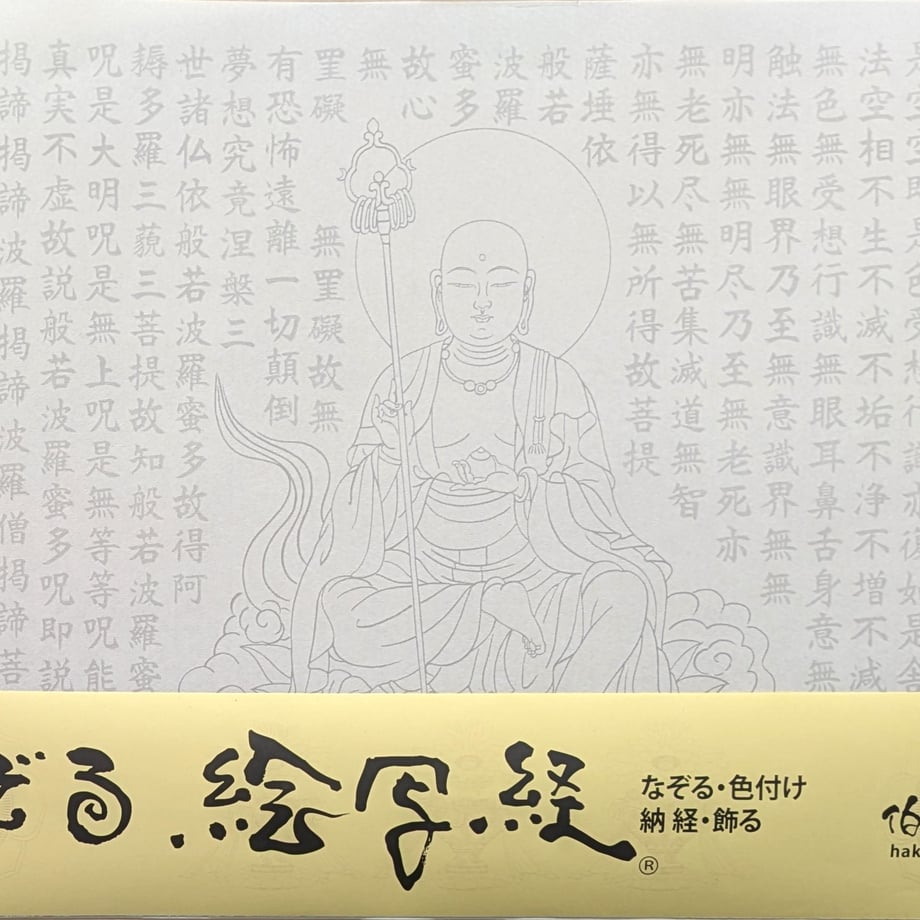 法空相不生不滅不垢不浄不増不減
無色無受想行識無眼耳鼻舌身意無
触法無眼界乃至無意識界無無
明亦無無明尽乃至無老死亦
無老死尽無苦集滅道無智
亦無得以無所得故菩提
薩埵依
般若
波羅
蜜多
故心
無
罣礙 無罣礙故無
有恐怖遠離一切顛倒
夢想究竟涅槃三
世諸仏依般若波羅蜜多故得阿
耨多羅三藐三菩提故知般若波羅蜜
呪是大明呪是無上呪是無等等呪能
真実不虚故説般若波羅蜜多呪即説
掲諦掲諦波羅掲諦波羅僧掲諦菩
ぞる 絵写経®
なぞる・色付け
納経・飾る
伯
hak